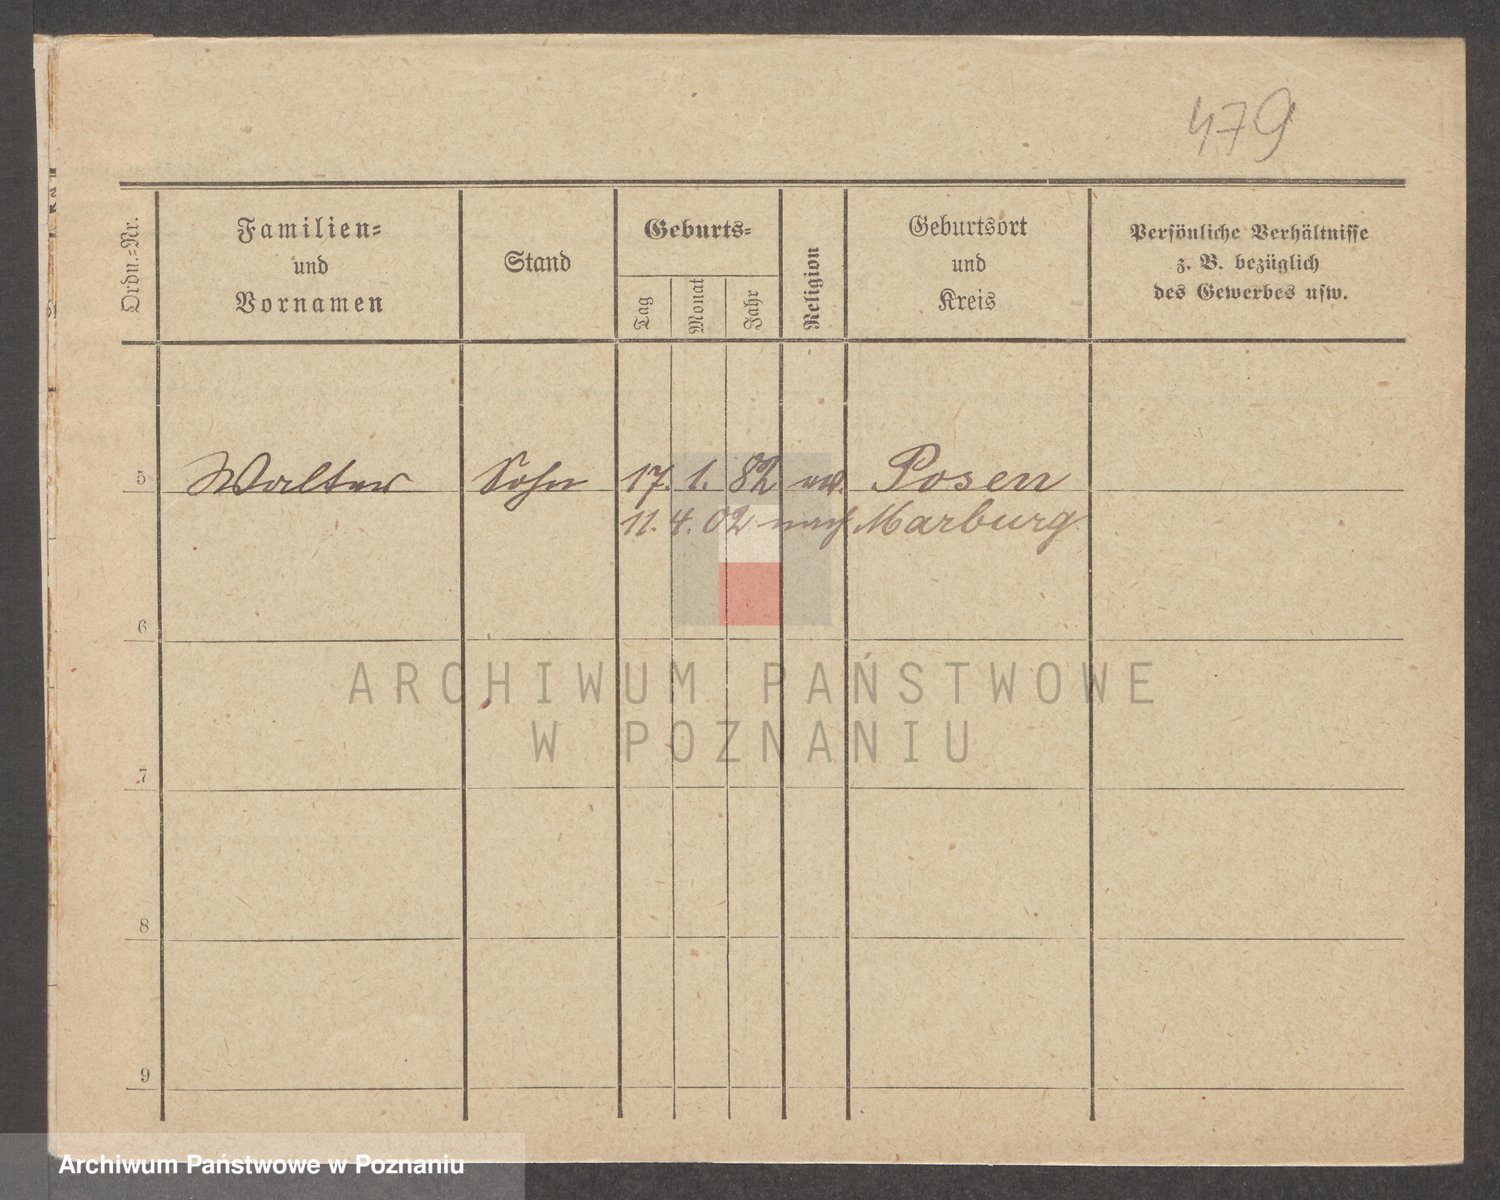 479
Ordn.-Nr.
Familien-
und
Vornamen
Stand
Geburts-
Tag
Monat
Jahr
Religion
Geburtsort
und
Kreis
Persönliche Verhältnisse
z. B. bezüglich
des Gewerbes usw.
5 Walter Sohn 17. 1. 82 Posen
11. 4. 02 nach Marburg
6
7
8
9
ARCHIWUM PAŃSTWOWE
W POZNANIU
Archiwum Państwowe w Poznaniu